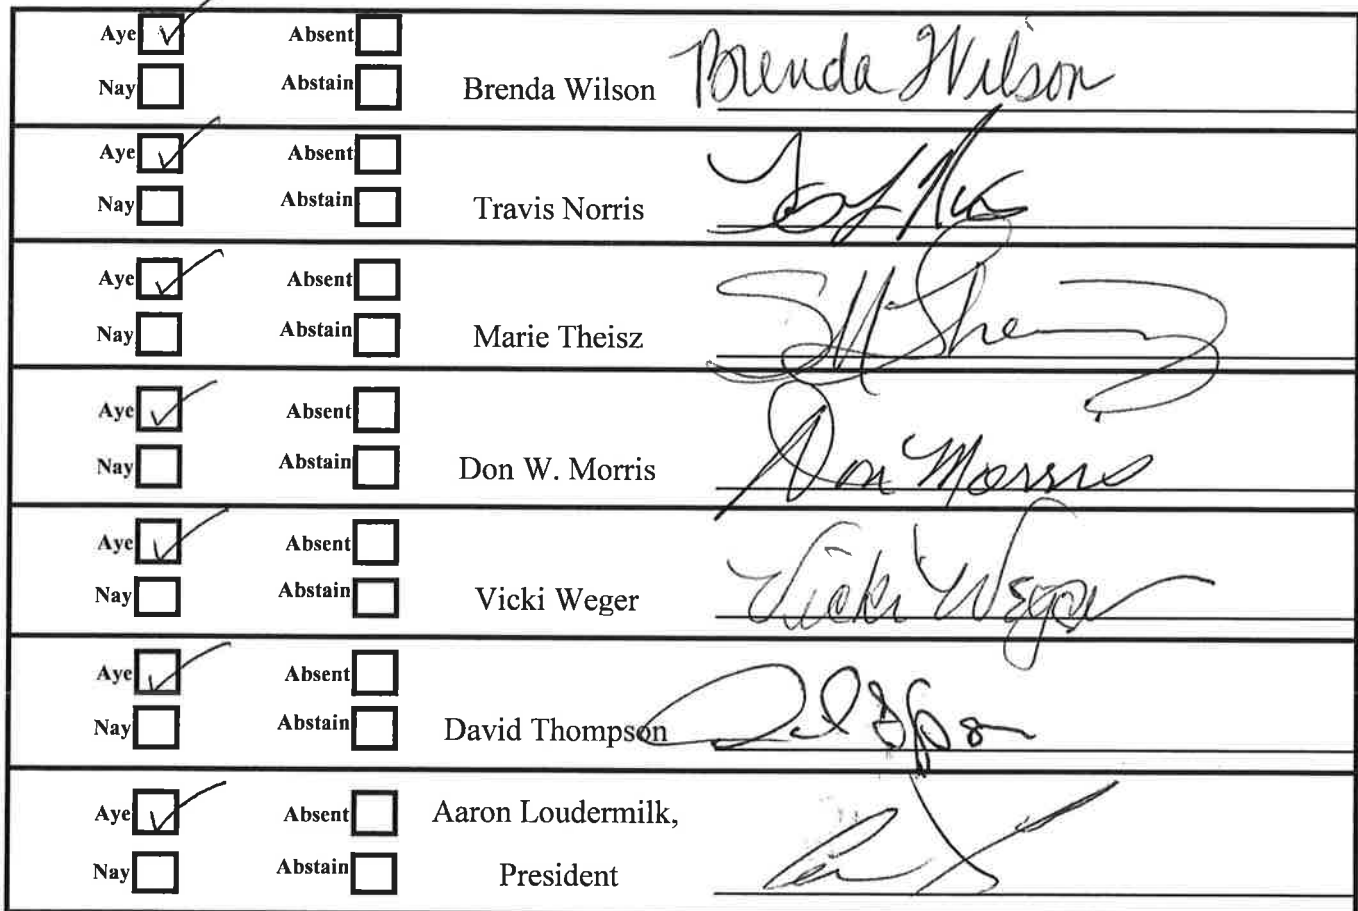 Aye Absent
Nay Abstain Brenda Wilson Brenda Wilson
Aye Absent
Nay Abstain Travis Norris
Aye Absent
Nay Abstain Marie Theisz
Aye Absent
Nay Abstain Don W. Morris Don Morris
Aye Absent
Nay Abstain Vicki Weger Vicki Weger
Aye Absent
Nay Abstain David Thompson
Aye Absent Aaron Loudermilk,
Nay Abstain President